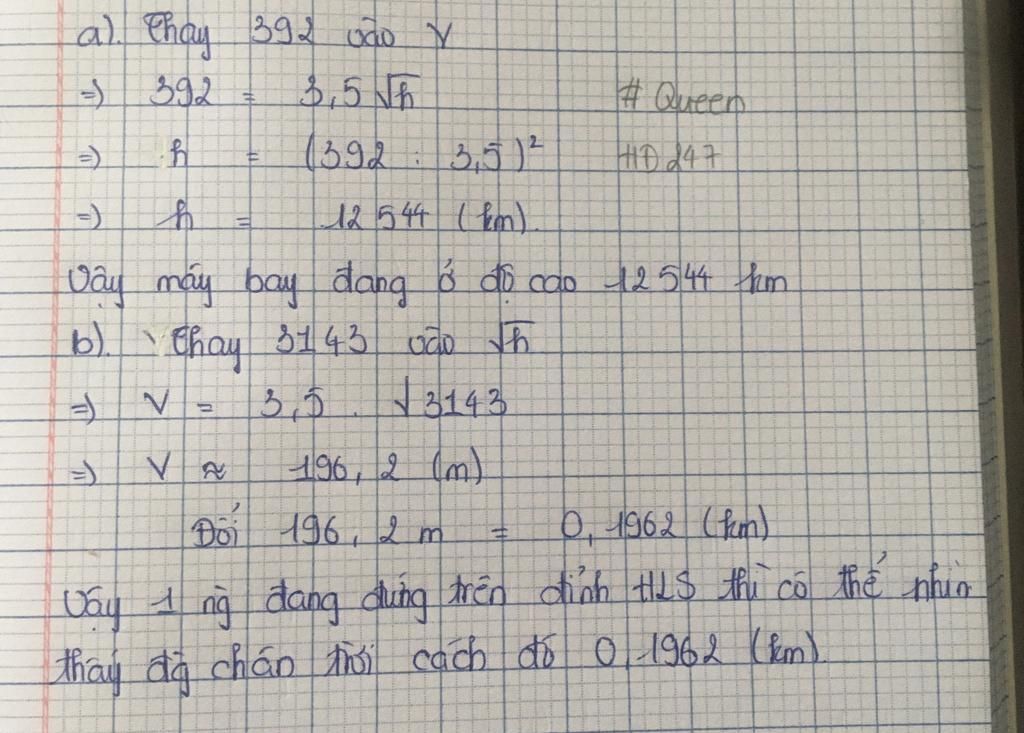 a). Thay 392 vào V
=) 392 = 3,5 √h
# Queen
=) h = (392 : 3,5)²
HĐ 247
=) h = 12 544 (km).
Vậy máy bay đang ở độ cao 12 544 km
b). Thay 3143 vào √h
=) V = 3,5 . √3143
=) V ≈ 196, 2 (m)
Đổi 196, 2 m = 0, 1962 (km)
Vậy 1 ng đang đứng trên đỉnh HLS thì có thể nhìn
thấy đg chân trời cách đó 0, 1962 (km).